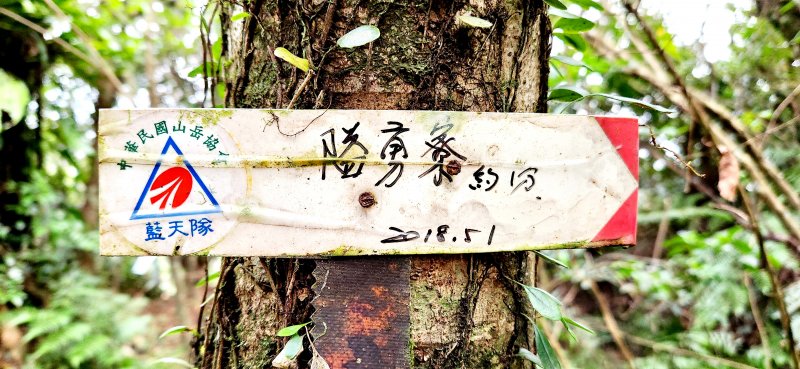 中華民國山岳協
藍天隊
隘勇寮 約1分
2018.5.1